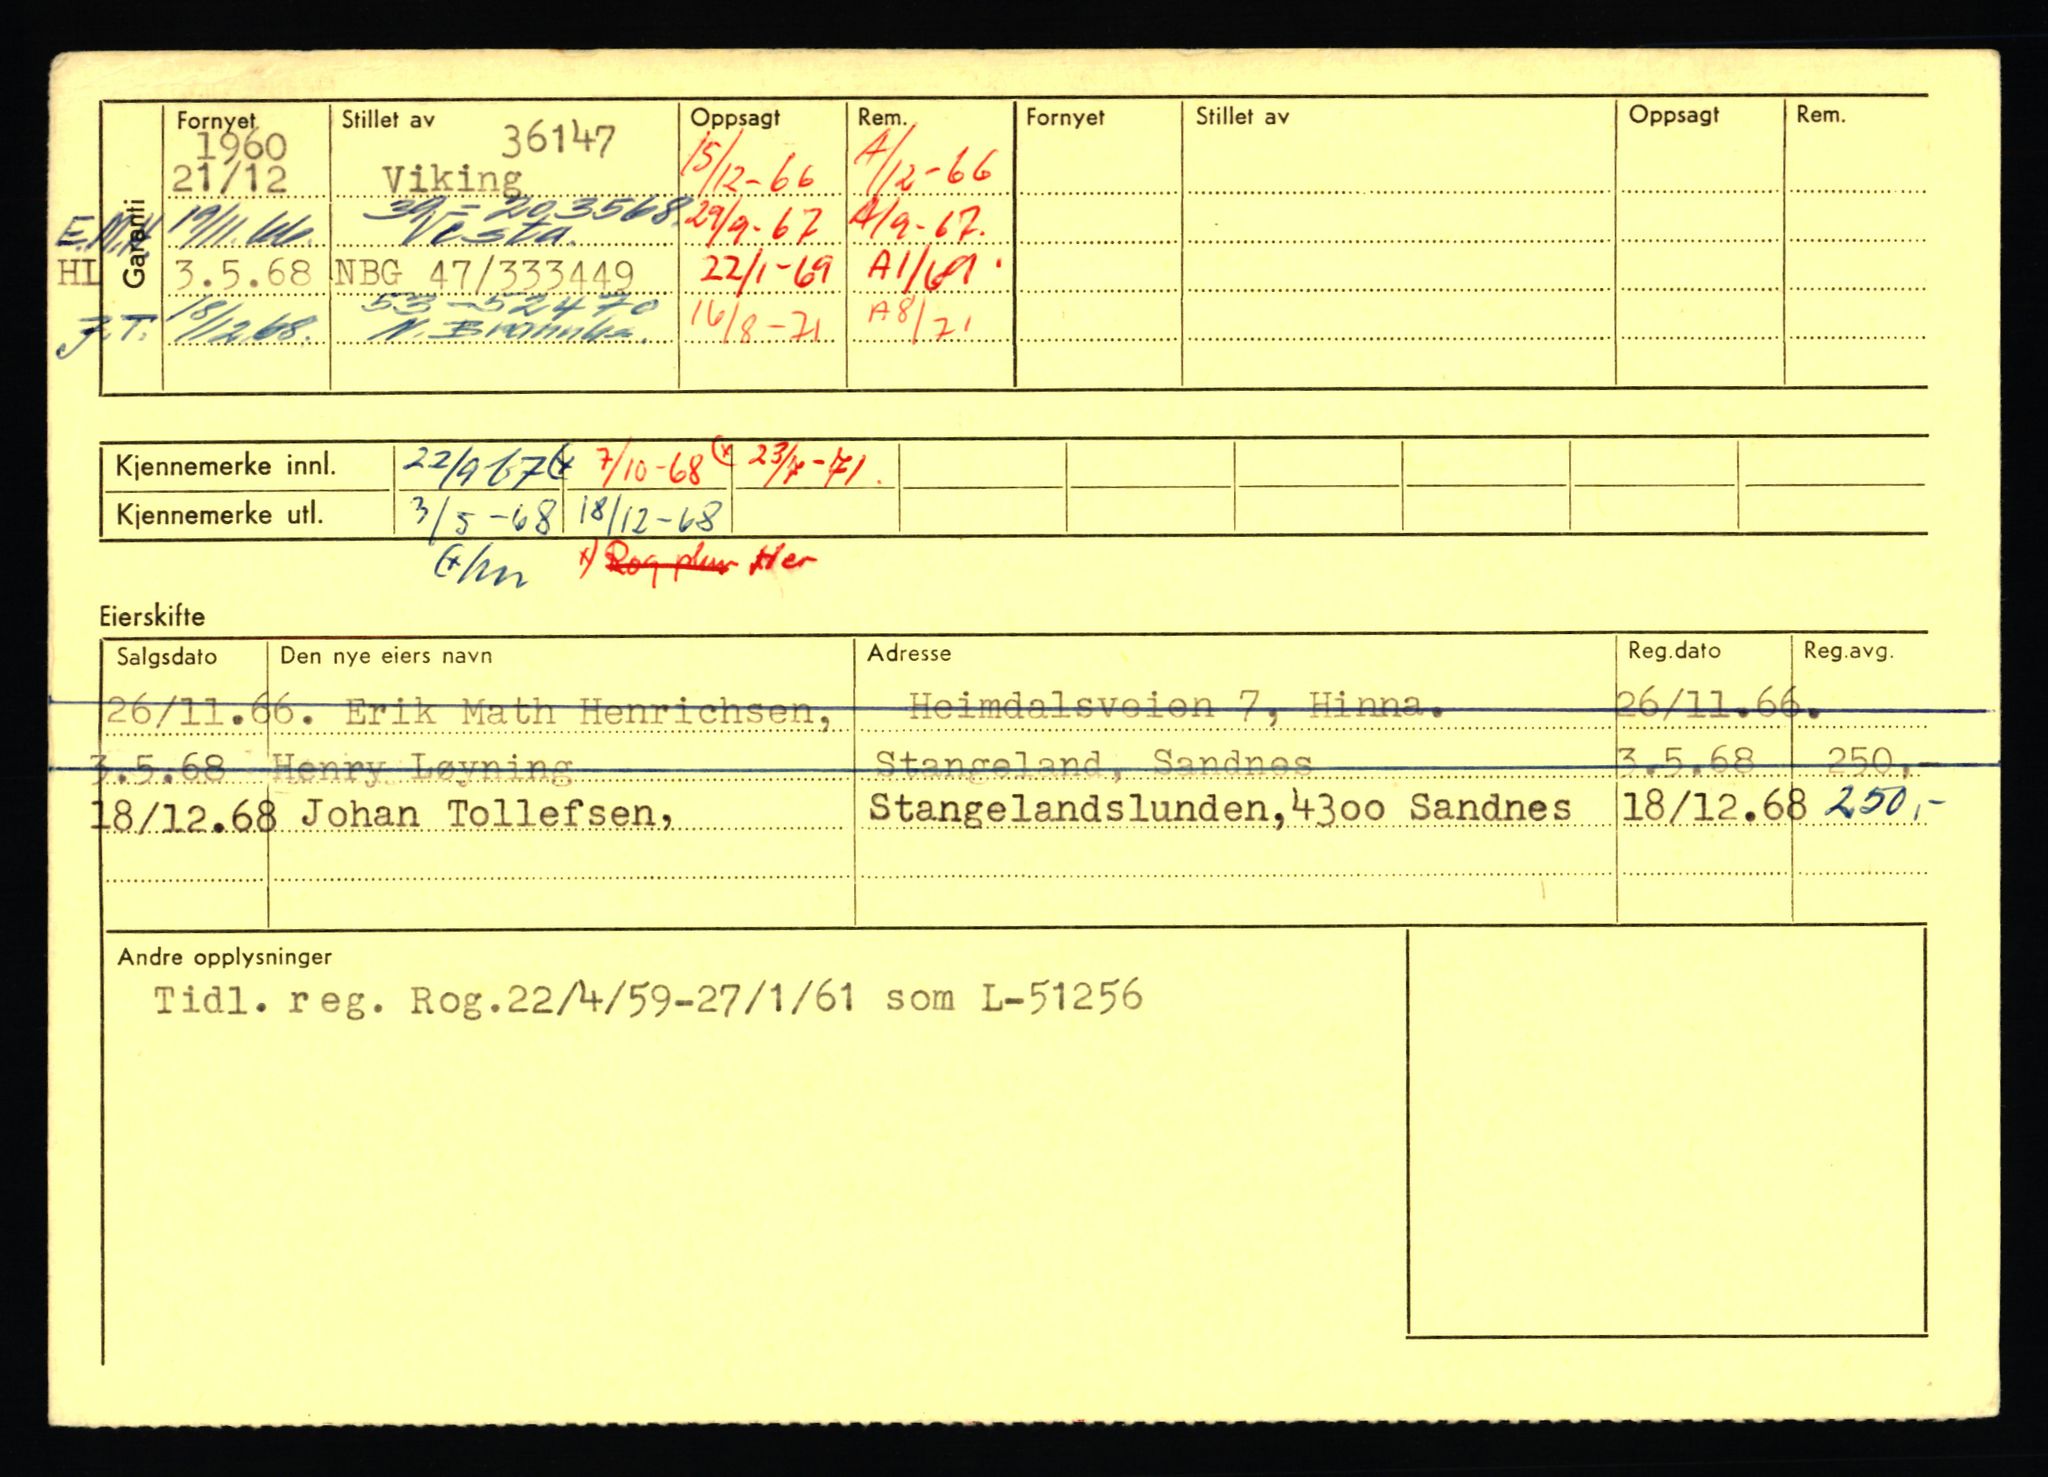 Garanti
Fornyet Stillet av Oppsagt Rem. Fornyet Stillet av Oppsagt Rem.
1960 36147
21/12 Viking 15/12-66 A/12-66
39-203568
E.M.H 19/11.66. Vesta. 29/9-67 A/9-67.
HL 3.5.68 NBG 47/333449 22/1-69 A1/69
53-52470
J.T. 18/12.68. 16/8-71 A8/71
Kjennemerke innl. 22/9-67 (x 7/10-68 (x 23/7-71.
Kjennemerke utl. 3/5-68 18/12-68
(x x) Rog Her
Eierskifte
Salgsdato Den nye eiers navn Adresse Reg.dato Reg.avg.
26/11.66. Erik Math Henrichsen, Heimdalsveien 7, Hinna. 26/11.66.
3.5.68 Henry Løyning Stangeland, Sandnes 3.5.68 250,-
18/12.68 Johan Tollefsen, Stangelandslunden,4300 Sandnes 18/12.68 250,-
Andre opplysninger
Tidl. reg. Rog.22/4/59-27/1/61 som L-51256